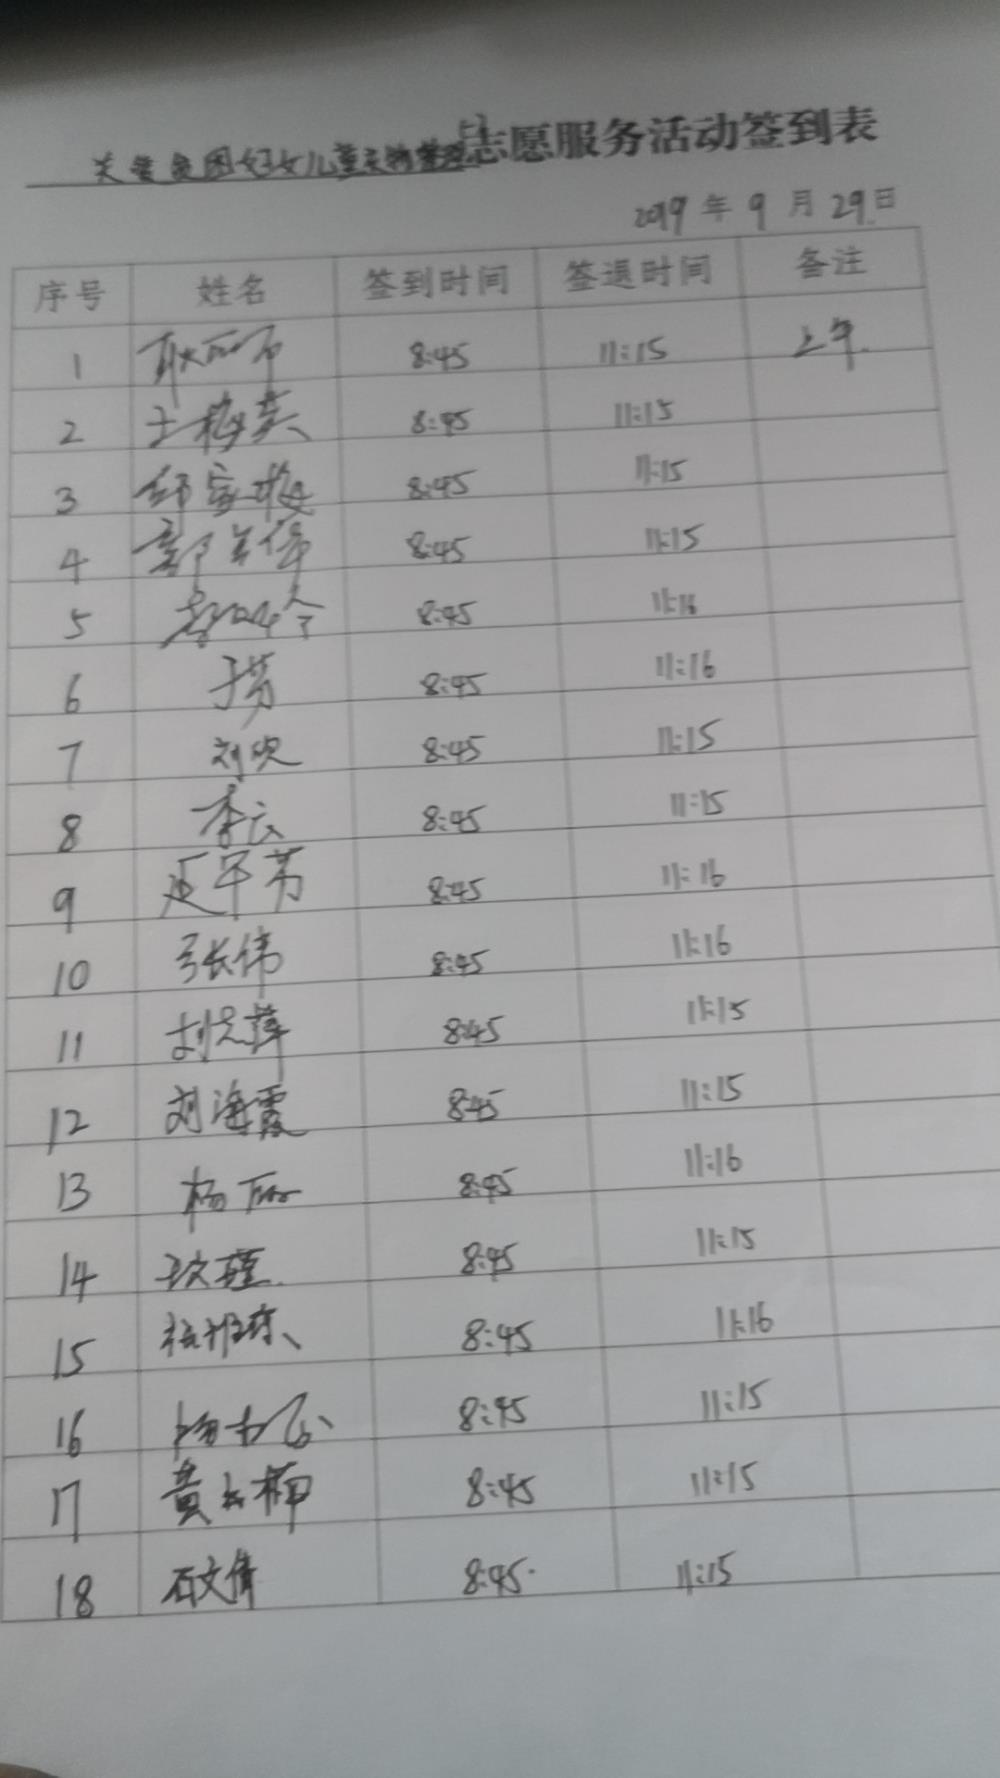 关爱贫困妇女儿童衣物整理志愿服务活动签到表
2019年9月29日
序号 姓名 签到时间 签退时间 备注
1 8:45 11:15 上午
2 王梅英 8:45 11:15
3 8:45 11:15
4 8:45 11:15
5 8:45 11:16
6 于芳 8:45 11:16
7 刘欢 8:45 11:15
8 李云 8:45 11:15
9 8:45 11:16
10 张伟 8:45 11:16
11 8:45 11:15
12 刘海霞 8:45 11:15
13 杨丽 8:45 11:16
14 8:45 11:15
15 8:45 11:16
16 8:45 11:15
17 8:45 11:15
18 石文倩 8:45 11:15